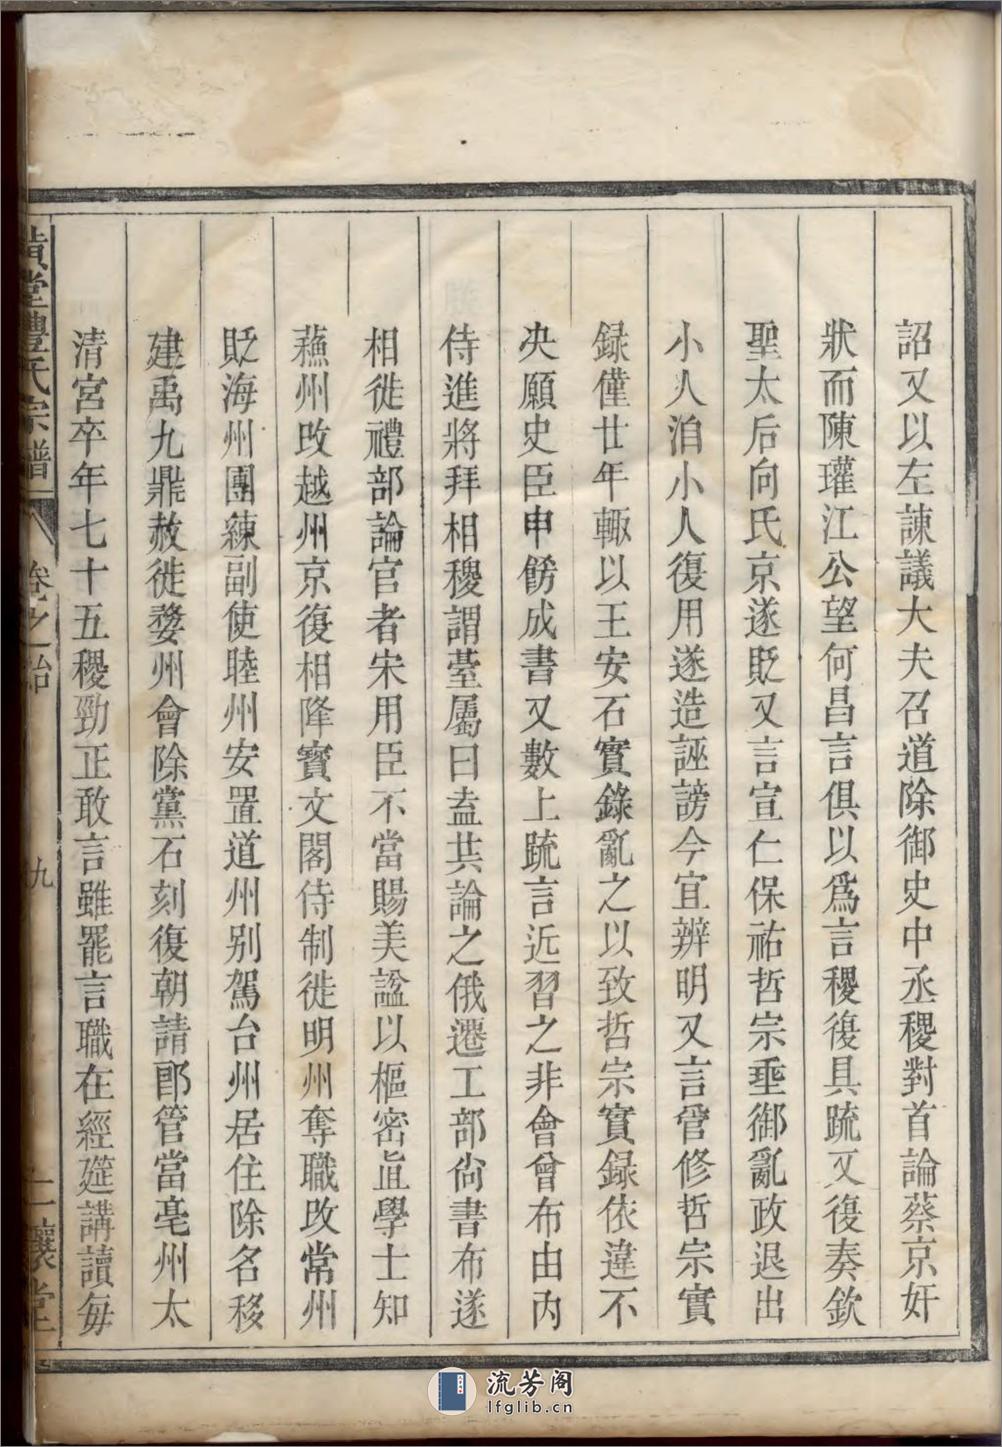 詔又以左諫議大夫召道除御史中丞稷對首論蔡京奸
狀而陳瓘江公望何昌言俱以爲言稷復具䟽又復奏欽
聖太后向氏京遂貶又言宣仁保祐哲宗垂御亂政退出
小人洎小人復用遂造誣謗今宜辨明又言管修哲宗實
録僅廿年輙以王安石實錄亂之以致哲宗實録依違不
决願史臣申飭成書又數上䟽言近習之非會曾布由内
侍進將拜相稷謂臺屬曰盍共論之俄遷工部尙書布遂
相徙禮部論宦者宋用臣不當賜美諡以樞密直學士知
蘓州改越州京復相降寶文閣侍制徙明州奪職改常州
貶海州團練副使睦州安置道州别駕台州居住除名移
建禹九鼎赦徙婺州會除黨石刻復朝請郎管當亳州太
清宮卒年七十五稷勁正敢言雖罷言職在經筵講讀毎
黄堂豊氏宗譜 卷之 九 堂
流芳阁
lfglib.cn